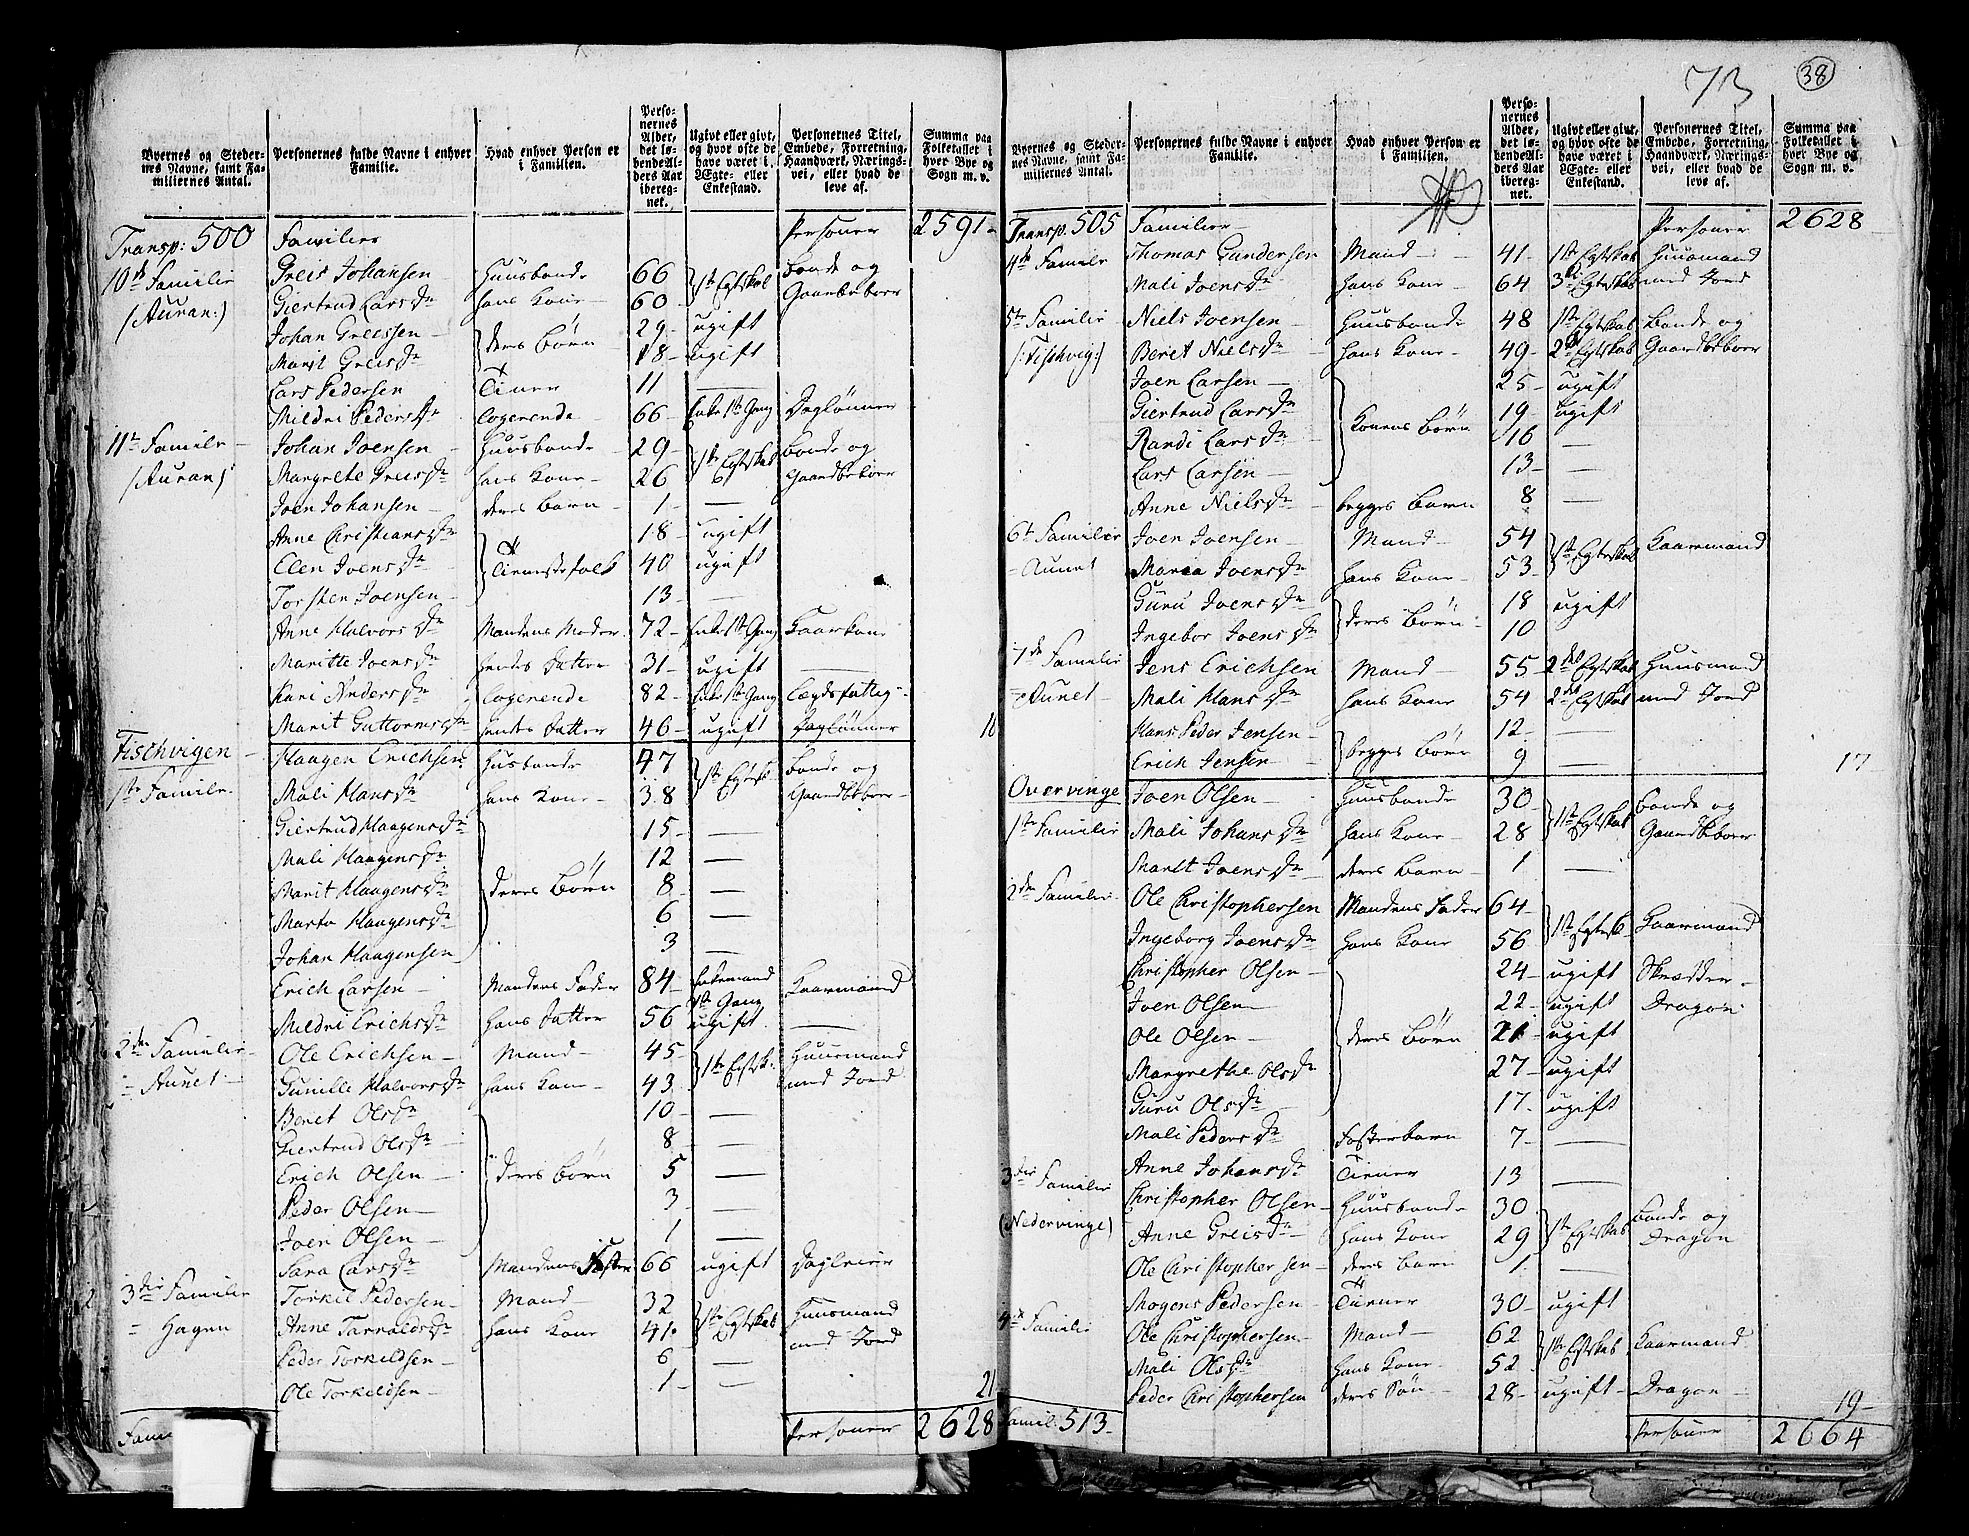 73 38
Byernes og Stedernes Navne, samt Familiernes Antal. | Personernes fulde Navne i enhver Familie. | Hvad enhver Person er i Familien. | Personernes Alder, det løbende Alders Aar iberegnet. | Ugivt eller givt, og hvor ofte de have været i Ægte- eller Enkestand. | Personernes Titel, Embede, Forretning, Haandværk, Næringsvei, eller hvad de leve af. | Summa paa Folketallet i hver Bye og Sogn m. v.
Transp: 500 Familier Personer 2591
10de Familie Greis Johansen Huusbonde 66 1ste Egteskab Bonde og
(Auran:) Giertrud Larsdr hans Kone 60 Gaardbeboer
Johan Greissen deres Børn 29 ugift
Marit Greisdr 18 ugift
Lars Pedersen Tiener 11 —
Mildri Pedersdr Logerende 66 Enke 1ste Gang Daglønner
11te Familie Johan Joensen Huusbonde 29 1ste Egteskab Bonde og
(Auran) Margrete Greisdr hans Kone 26 Gaardbeboer
Joen Johansen deres Barn 1 —
Anne Christiansdr Tienestefolk 18 ugift
Elen Joensdr 40 ugift
Torsten Joensen 13 —
Anne Halvorsdr Mandens Moder 72 Enke 1ste Gang Kaarkone
Maritte Joensdr hendes Datter 31 ugift —
Kari Andersdr Logerende 82 Enke 1ste Gang Lægdsfattig
Marit Guttormsdr hendes Datter 46 ugift Daglønner 16
Fischvigen Haagen Erichsen Husbonde 47 1ste Egtesk Bonde og
1ste Familie Mali Hansdr hans Kone 38 Gaardbeboer
Giertrud Haagensdr 15 —
Mali Haagensdr 12 —
Marit Haagensdr deres Børn 8 —
Marta Haagensdr 6 —
Johan Haagensen 3 —
Erich Larsen Mandens Fader 84 Enkemand 1ste Gang Kaarmand
Mildri Erichsdr hans Datter 56 ugift —
2den Familie Ole Erichsen Mand 45 1ste Egtsk: Huusmand
Aunet Gunille Halvorsdr hans Kone 43 med Jord
Beret Olsdr 10 —
Giertrud Olsdr 8 —
Erich Olsen deres Børn 5 —
Peder Olsen 3 —
Joen Olsen 1 —
Sara Larsdr Mandens Søster 66 ugift
3die Familie Torkel Pedersen Mand 32 1ste Egteskab Huusmand
Hagen Anne Tarraldsdr hans Kone 41 med Jord
Peder Torkildsen 6 —
Ole Torkildsen 1 — 21
Fami Personer 2628
Byernes og Stedernes Navne, samt Familiernes Antal. | Personernes fulde Navne i enhver Familie. | Hvad enhver Person er i Familien. | Personernes Alder, det løbende Alders Aar iberegnet. | Ugivt eller givt, og hvor ofte de have været i Ægte- eller Enkestand. | Personernes Titel, Embede, Forretning, Haandværk, Næringsvei, eller hvad de leve af. | Summa paa Folketallet i hver Bye og Sogn m. v.
Transp. 505 Familier Personer 2628
4de Familie Thomas Gundersen Mand 41 1ste Egteskab Huusmand
Mali Joensdr hans Kone 64 3die Egteskab med Jord
5te Familie Niels Joensen Huusbonde 48 1ste Egteskab Bonde og
(:Fischvig:) Beret Nielsdr hans Kone 49 2det Egteskab Gaardbeboer
Joen Larsen 25 ugift
Giertrud Larsdr Konens Børn 19 ugift
Randi Larsdr 16 —
Lars Larsen 13 —
Anne Nielsdr begges Barn 8 —
6te Familie Joen Joensen Mand 54 1ste Egteskab Kaarmand
Aunet Maria Joensdr hans Kone 53
Guru Joensdr deres Børn 18 ugift
Ingebor Joensdr 10
7de Familie Jens Erichsen Mand 55 2det Egteskab Huusmand
Aunet Mali Hansdr hans Kone 54 2det Egteskab med Jord
Hans Peder Jensen begges Børn 12 —
Erich Jensen 9 — 17
Overvinge Joen Olsen Huusbonde 30 1ste Egteskab Bonde og
1ste Familie Mali Johansdr hans Kone 28 Gaardbeboer
Maret Joensdr deres Barn 1 —
2den Familie Ole Christophersen Mandens Fader 64 1ste Egtesk Kaarmand
Ingeborg Joensdr hans Kone 56
Christopher Olsen 24 ugift Skrædder
Joen Olsen 22 ugift Dragon
Ole Olsen deres Børn 21 ugift
Margrethe Olsdr 27 ugift
Guru Olsdr 17 ugift
Mali Pedersdr Fosterbarn 7 —
Anne Johansdr Tiener 13 —
3die Familie Christopher Olsen Huusbonde 30 1ste Egteskab Bonde og
(Nedervinge) Anne Greisdr hans Kone 29 Dragon
Ole Christophersen deres Barn 1 —
Mogens Pedersen Tiener 30 ugift
4de Familie Ole Christophersen Mand 62 1ste Egteskab Kaarmand
Mali Olsdr hans Kone 52
Peder Christophersen deres Søn 28 ugift Dragon 19
Famil: 513 Personer 2664